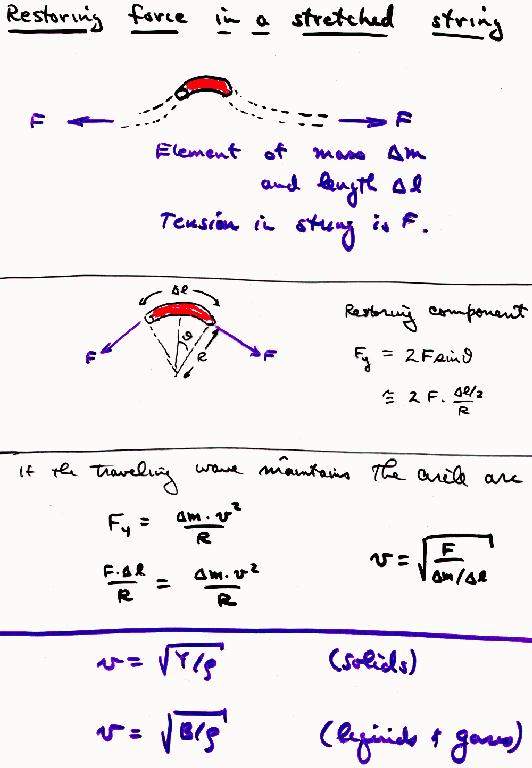 Restoring force in a stretched string
F F
Element of mass Δm
and length Δl
Tension in string is F.
Δl
θ
R
F F
Restoring component
F_y = 2F sinθ
≅ 2F · (Δl/2)/R
If the traveling wave maintains the circle arc
F_y = Δm·v²/R
F·Δl/R = Δm·v²/R
v = √(F/(Δm/Δl))
v = √(Y/ρ) (solids)
v = √(B/ρ) (liquids + gases)